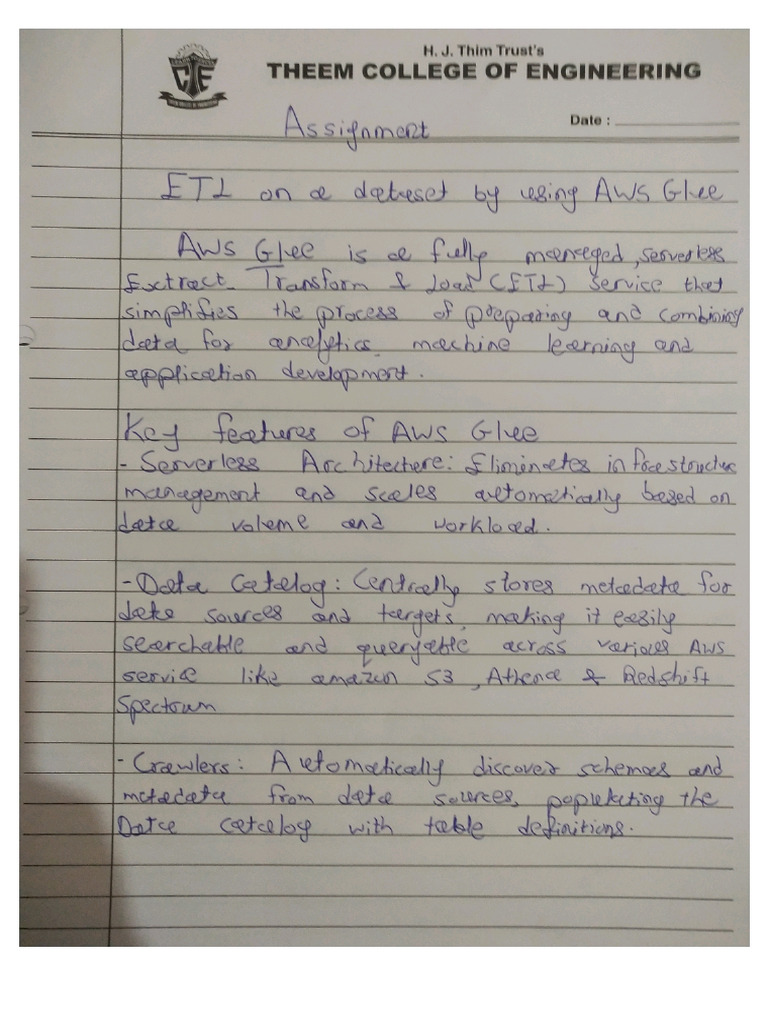 H. J. Thim Trust's
THEEM COLLEGE OF ENGINEERING
Date :
Assignment
ETL on a dataset by using AWS Glue
AWS Glue is a fully managed, serverless
Extract Transform & Load (ETL) service that
simplifies the process of preparing and combining
data for analytics, machine learning and
application development.
Key features of AWS Glue
- Serverless Architecture: Eliminates infrastructure
management and scales automatically based on
data volume and workload.
- Data Catalog: Centrally stores metadata for
data sources and targets, making it easily
searchable and queryable across various AWS
service like amazon S3, Athena & Redshift
Spectrum
- Crawlers: Automatically discover schemas and
metadata from data sources, populating the
Data catalog with table definitions.